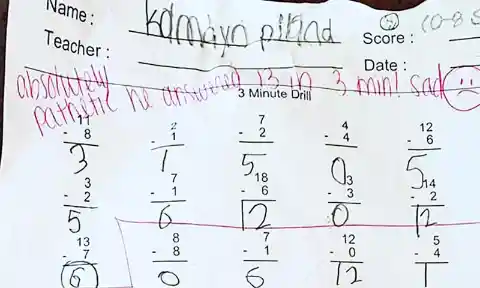 Name : kamdyn piland
Score : (0-8 S
Teacher :
Date :
absolutely pathetic he answered 13 in 3 min! sad
3 Minute Drill
11 2 7 4 12
- 8 - 1 - 2 - 4 - 6
3 1 5 0 5
3 7 18 3 14
- 2 - 1 - 6 - 3 - 2
5 6 12 0 12
13 8 7 12 5
- 7 - 8 - 1 - 0 - 4
6 0 6 12 1